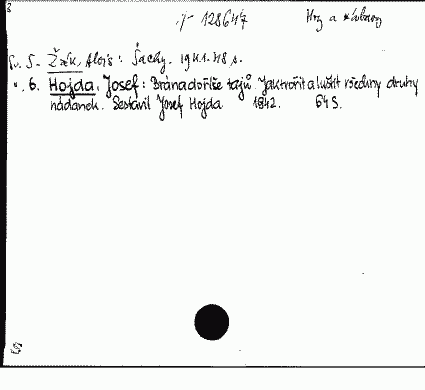 128647 Hry a zábavy
Sv. 5. Žák, Alois: Šachy. 1941. 48 s.
". 6. Hojda, Josef: Brána do říše tajů. Jak tvořit a luštit všechny druhy
hádanek. Sestavil Josef Hojda 1942. 64 S.